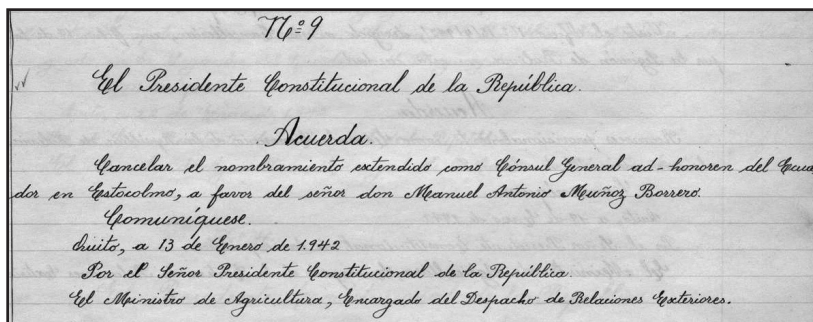 Nº 9
El Presidente Constitucional de la República.
Acuerda.
Cancelar el nombramiento extendido como Cónsul General ad-honoren del Ecua
dor en Estocolmo, a favor del señor don Manuel Antonio Muñoz Borrero.
Comuníquese.
Quito, a 13 de Enero de 1.942
Por el Señor Presidente Constitucional de la República.
El Ministro de Agricultura, Encargado del Despacho de Relaciones Exteriores.